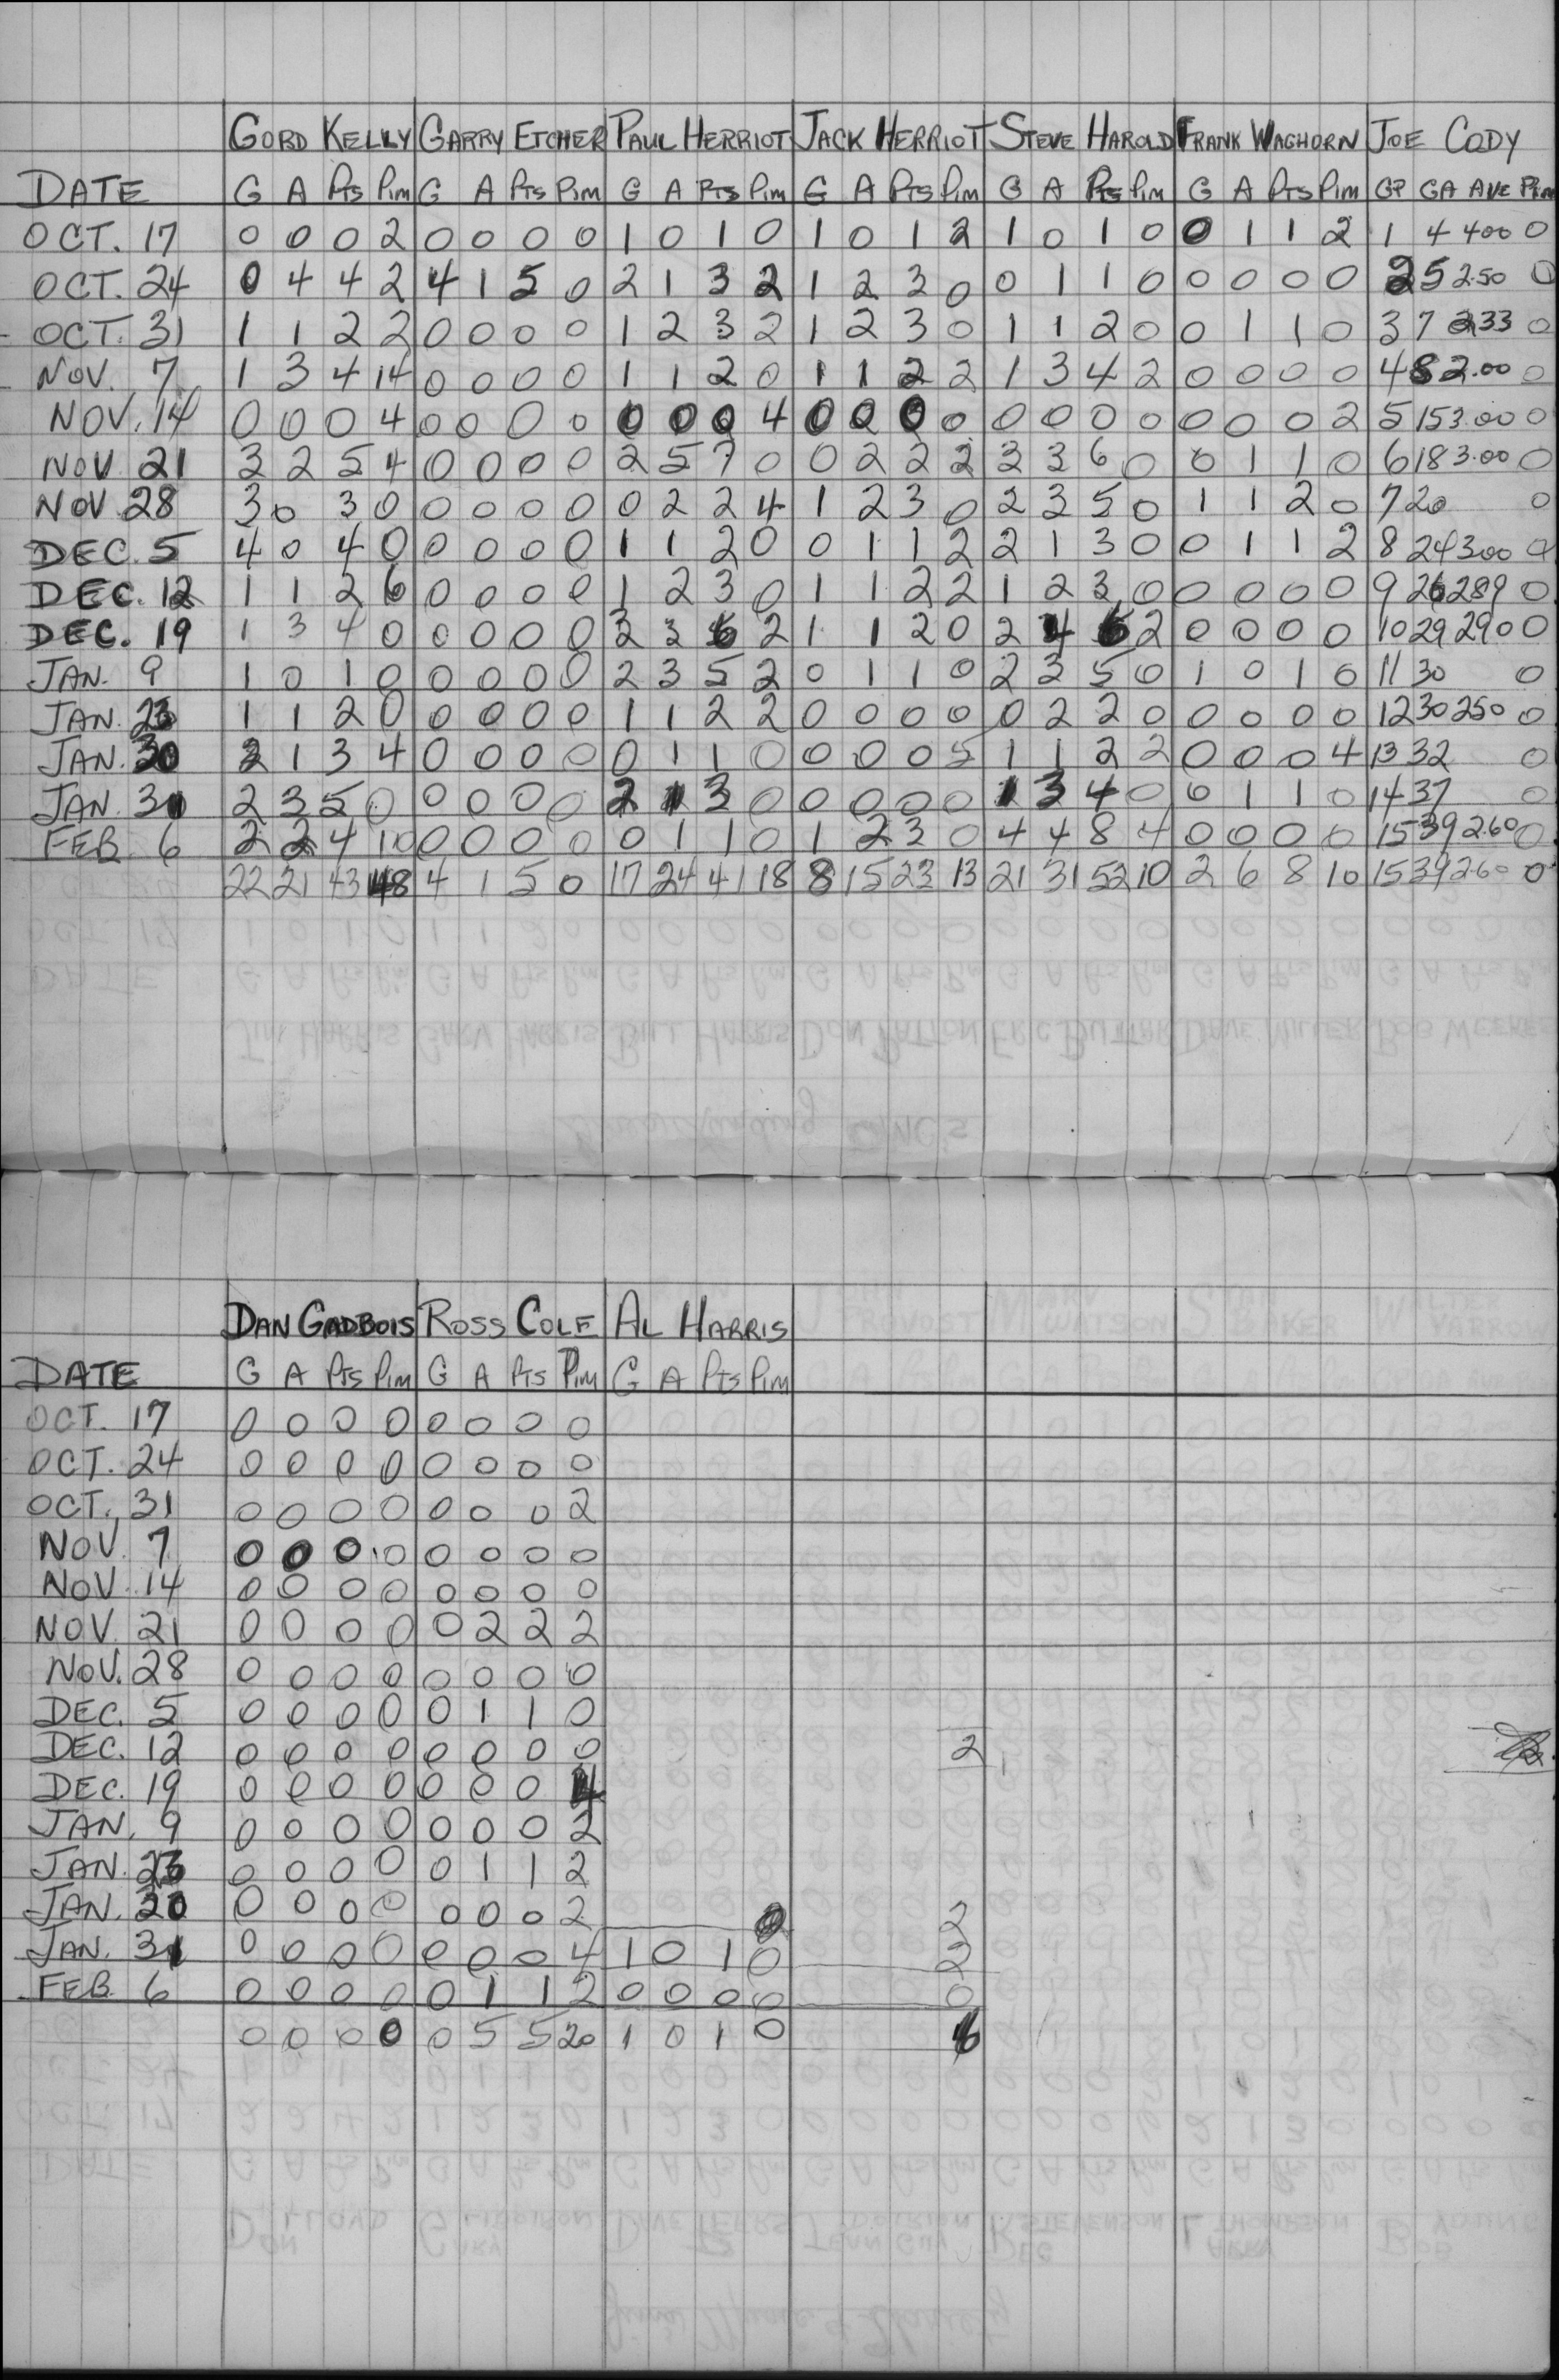 GORD KELLY GARRY ETCHER PAUL HERRIOT JACK HERRIOT STEVE HAROLD FRANK WAGHORN JOE CODY
DATE G A Pts Pim G A Pts Pim G A Pts Pim G A Pts Pim G A Pts Pim G A Pts Pim GP GA AVE Pim
OCT. 17 0 0 0 2 0 0 0 0 1 0 1 0 1 0 1 2 1 0 1 0 0 1 1 2 1 4 400 0
OCT. 24 0 4 4 2 4 1 5 0 2 1 3 2 1 2 3 0 0 1 1 0 0 0 0 0 2 5 2.50 0
OCT. 31 1 1 2 2 0 0 0 0 1 2 3 2 1 2 3 0 1 1 2 0 0 1 1 0 3 7 233 0
NOV. 7 1 3 4 14 0 0 0 0 1 1 2 0 1 1 2 2 1 3 4 2 0 0 0 0 4 8 2.00 0
NOV. 14 0 0 0 4 0 0 0 0 0 0 0 4 0 0 0 0 0 0 0 0 0 0 0 2 5 15 3.00 0
NOV. 21 3 2 5 4 0 0 0 0 2 5 7 0 0 2 2 2 3 3 6 0 0 1 1 0 6 18 3.00 0
NOV. 28 3 0 3 0 0 0 0 0 0 2 2 4 1 2 3 0 2 3 5 0 1 1 2 0 7 20 0
DEC. 5 4 0 4 0 0 0 0 0 1 1 2 0 0 1 1 2 2 1 3 0 0 1 1 2 8 24 300 0
DEC. 12 1 1 2 6 0 0 0 0 1 2 3 0 1 1 2 2 1 2 3 0 0 0 0 0 9 26 289 0
DEC. 19 1 3 4 0 0 0 0 0 3 3 6 2 1 1 2 0 2 4 6 2 0 0 0 0 10 29 290 0
JAN. 9 1 0 1 0 0 0 0 0 2 3 5 2 0 1 1 0 2 3 5 0 1 0 1 0 11 30 0
JAN. 23 1 1 2 0 0 0 0 0 1 1 2 2 0 0 0 0 0 2 2 0 0 0 0 0 12 30 250 0
JAN. 30 2 1 3 4 0 0 0 0 0 1 1 0 0 0 0 5 1 1 2 2 0 0 0 4 13 32 0
JAN. 31 2 3 5 0 0 0 0 0 2 1 3 0 0 0 0 0 1 3 4 0 0 1 1 0 14 37 0
FEB. 6 2 2 4 10 0 0 0 0 0 1 1 0 1 2 3 0 4 4 8 4 0 0 0 0 15 39 2.60 0
22 21 43 48 4 1 5 0 17 24 41 18 8 15 23 13 21 31 52 10 2 6 8 10 15 39 2.60 0
DAN GADBOIS ROSS COLE AL HARRIS
DATE G A Pts Pim G A Pts Pim G A Pts Pim
OCT. 17 0 0 0 0 0 0 0 0
OCT. 24 0 0 0 0 0 0 0 0
OCT. 31 0 0 0 0 0 0 0 2
NOV. 7 0 0 0 0 0 0 0 0
NOV. 14 0 0 0 0 0 0 0 0
NOV. 21 0 0 0 0 0 2 2 2
NOV. 28 0 0 0 0 0 0 0 0
DEC. 5 0 0 0 0 0 1 1 0
DEC. 12 0 0 0 0 0 0 0 0 2
DEC. 19 0 0 0 0 0 0 0 4
JAN. 9 0 0 0 0 0 0 0 2
JAN. 23 0 0 0 0 0 1 1 2
JAN. 30 0 0 0 0 0 0 0 2 0 2
JAN. 31 0 0 0 0 0 0 0 4 1 0 1 0 2
FEB. 6 0 0 0 0 0 1 1 2 0 0 0 0 0
0 0 0 0 0 5 5 20 1 0 1 0 6